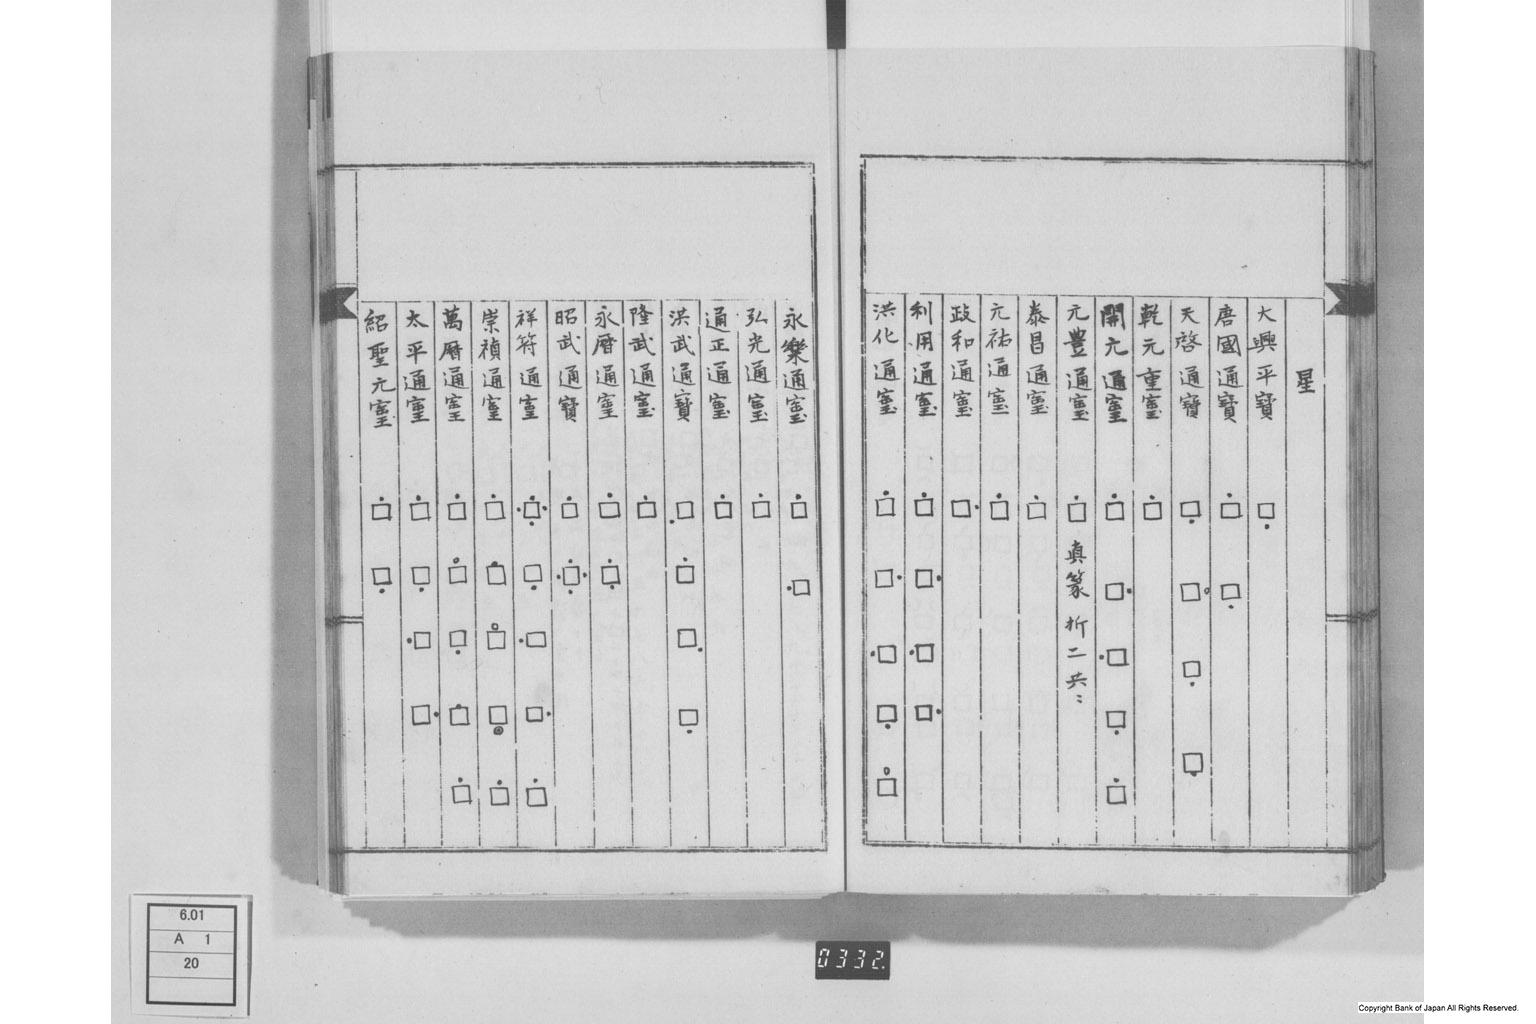 星
大興平寳
唐國通寳
天啓通寳
乾元重寚
開元通寚
元豊通寚 真篆 折二共ミ
泰昌通寚
元祐通寚
政和通寚
利用通寚
洪化通寚
永樂通寚
弘光通寚
通正通寚
洪武通寳
隆武通寚
永曆通寚
昭武通寳
祥符通寚
崇禎通寚
萬曆通寚
太平通寚
紹聖元寚
6.01
A 1
20
0332.
Copyright Bank of Japan All Rights Reserved.